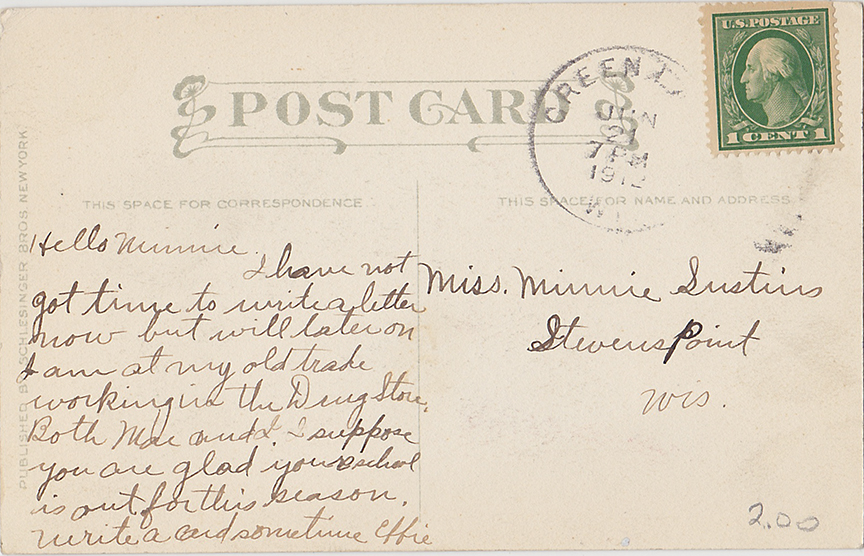 U.S. POSTAGE
1 CENT 1
POST CARD
GREEN
JUN
21
7 PM
1912
WI
THIS SPACE FOR CORRESPONDENCE
THIS SPACE FOR NAME AND ADDRESS
Hello Minnie.
I have not
got time to write a letter
now but will later on
I am at my old trade
working in the Drug Store.
Both Mae and I. I suppose
you are glad your school
is out for this season.
write a card sometime Effie
Miss. Minnie
Stevens Point
Wis.
PUBLISHED BY SCHLESINGER BROS. NEW YORK.
2.00